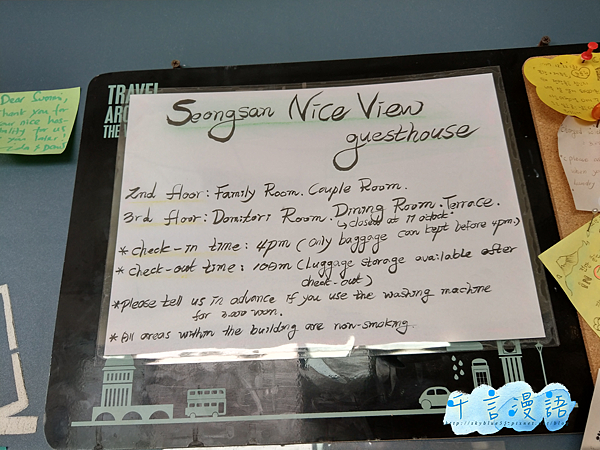 Dear Suwon,
Thank you for
your nice hos-
tality for us
TRAVEL
Seongsan Nice View
guesthouse
2nd floor: Family Room. Couple Room.
3rd floor: Domitori Room. Dining Room. Terrace.
↳ closed at 17 o'clock.
* check-in time: 4pm (Only baggage can kept before 4pm.)
* check-out time: 10am (Luggage storage available after
check-out)
* Please tell us in advance if you use the washing machine
for 2.000 won.
* All areas within the building are non-smoking.
千言漫語